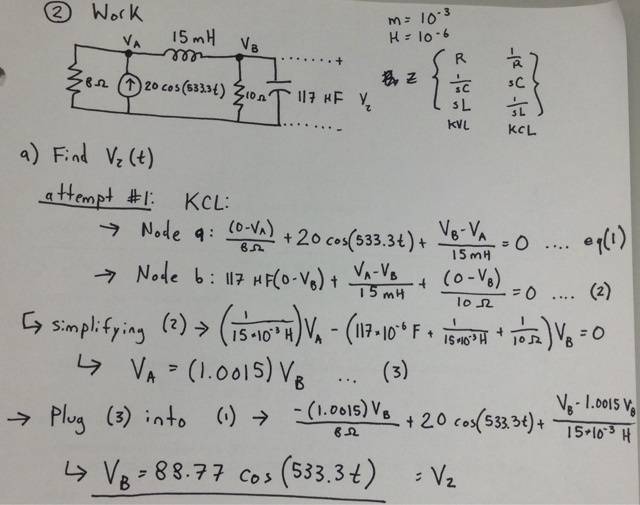 ② Work
m = 10^-3
H = 10^-6
V_A 15 mH V_B
8Ω 20 cos(533.3t) 10Ω 117 HF V_2
+
-
Z { R 1/R }
1/sC sC
sL 1/sL
KVL KCL
a) Find V_2(t)
attempt #1: KCL:
→ Node a: (0-V_A)/8Ω + 20 cos(533.3t) + (V_B-V_A)/15mH = 0 .... eq(1)
→ Node b: 117 HF(0-V_B) + (V_A-V_B)/15mH + (0-V_B)/10Ω = 0 .... (2)
↳ simplifying (2) → (1/(15*10^-3 H))V_A - (117*10^-6 F + 1/(15*10^-3 H) + 1/(10Ω))V_B = 0
↳ V_A = (1.0015) V_B ... (3)
→ Plug (3) into (1) → -(1.0015)V_B/8Ω + 20 cos(533.3t) + (V_B - 1.0015 V_B)/(15*10^-3 H)
↳ V_B = 88.77 cos(533.3t) = V_2